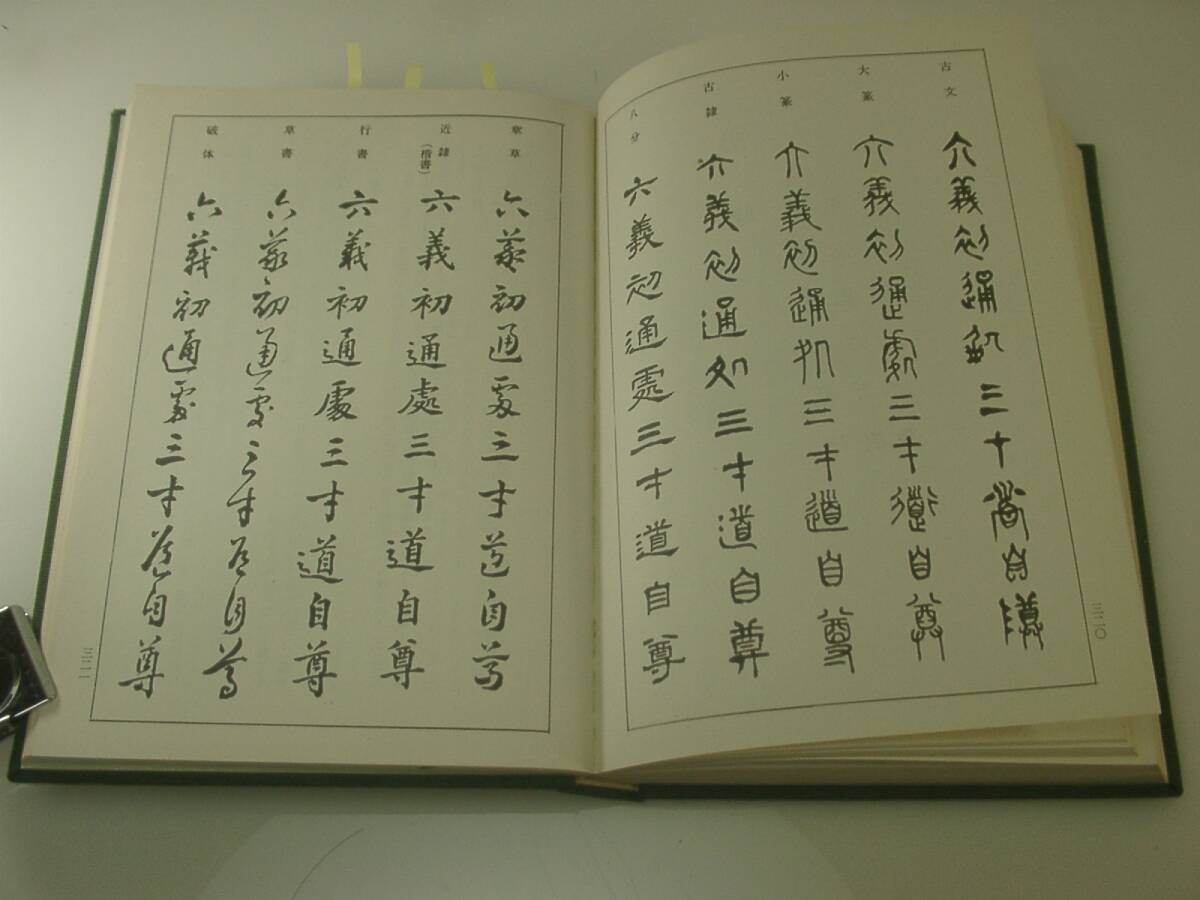 古文
六義初通処三才道自尊
大篆
六義初通處三才道自尊
小篆
六義初通処三才道自尊
古隷
六義初通処三才道自尊
八分
六義初通處三才道自尊
三二〇
章草
六義初通處三才道自尊
近隷(楷書)
六義初通處三才道自尊
行書
六義初通處三才道自尊
草書
六義初通處三才道自尊
破体
六義初通處三才道自尊
三二一